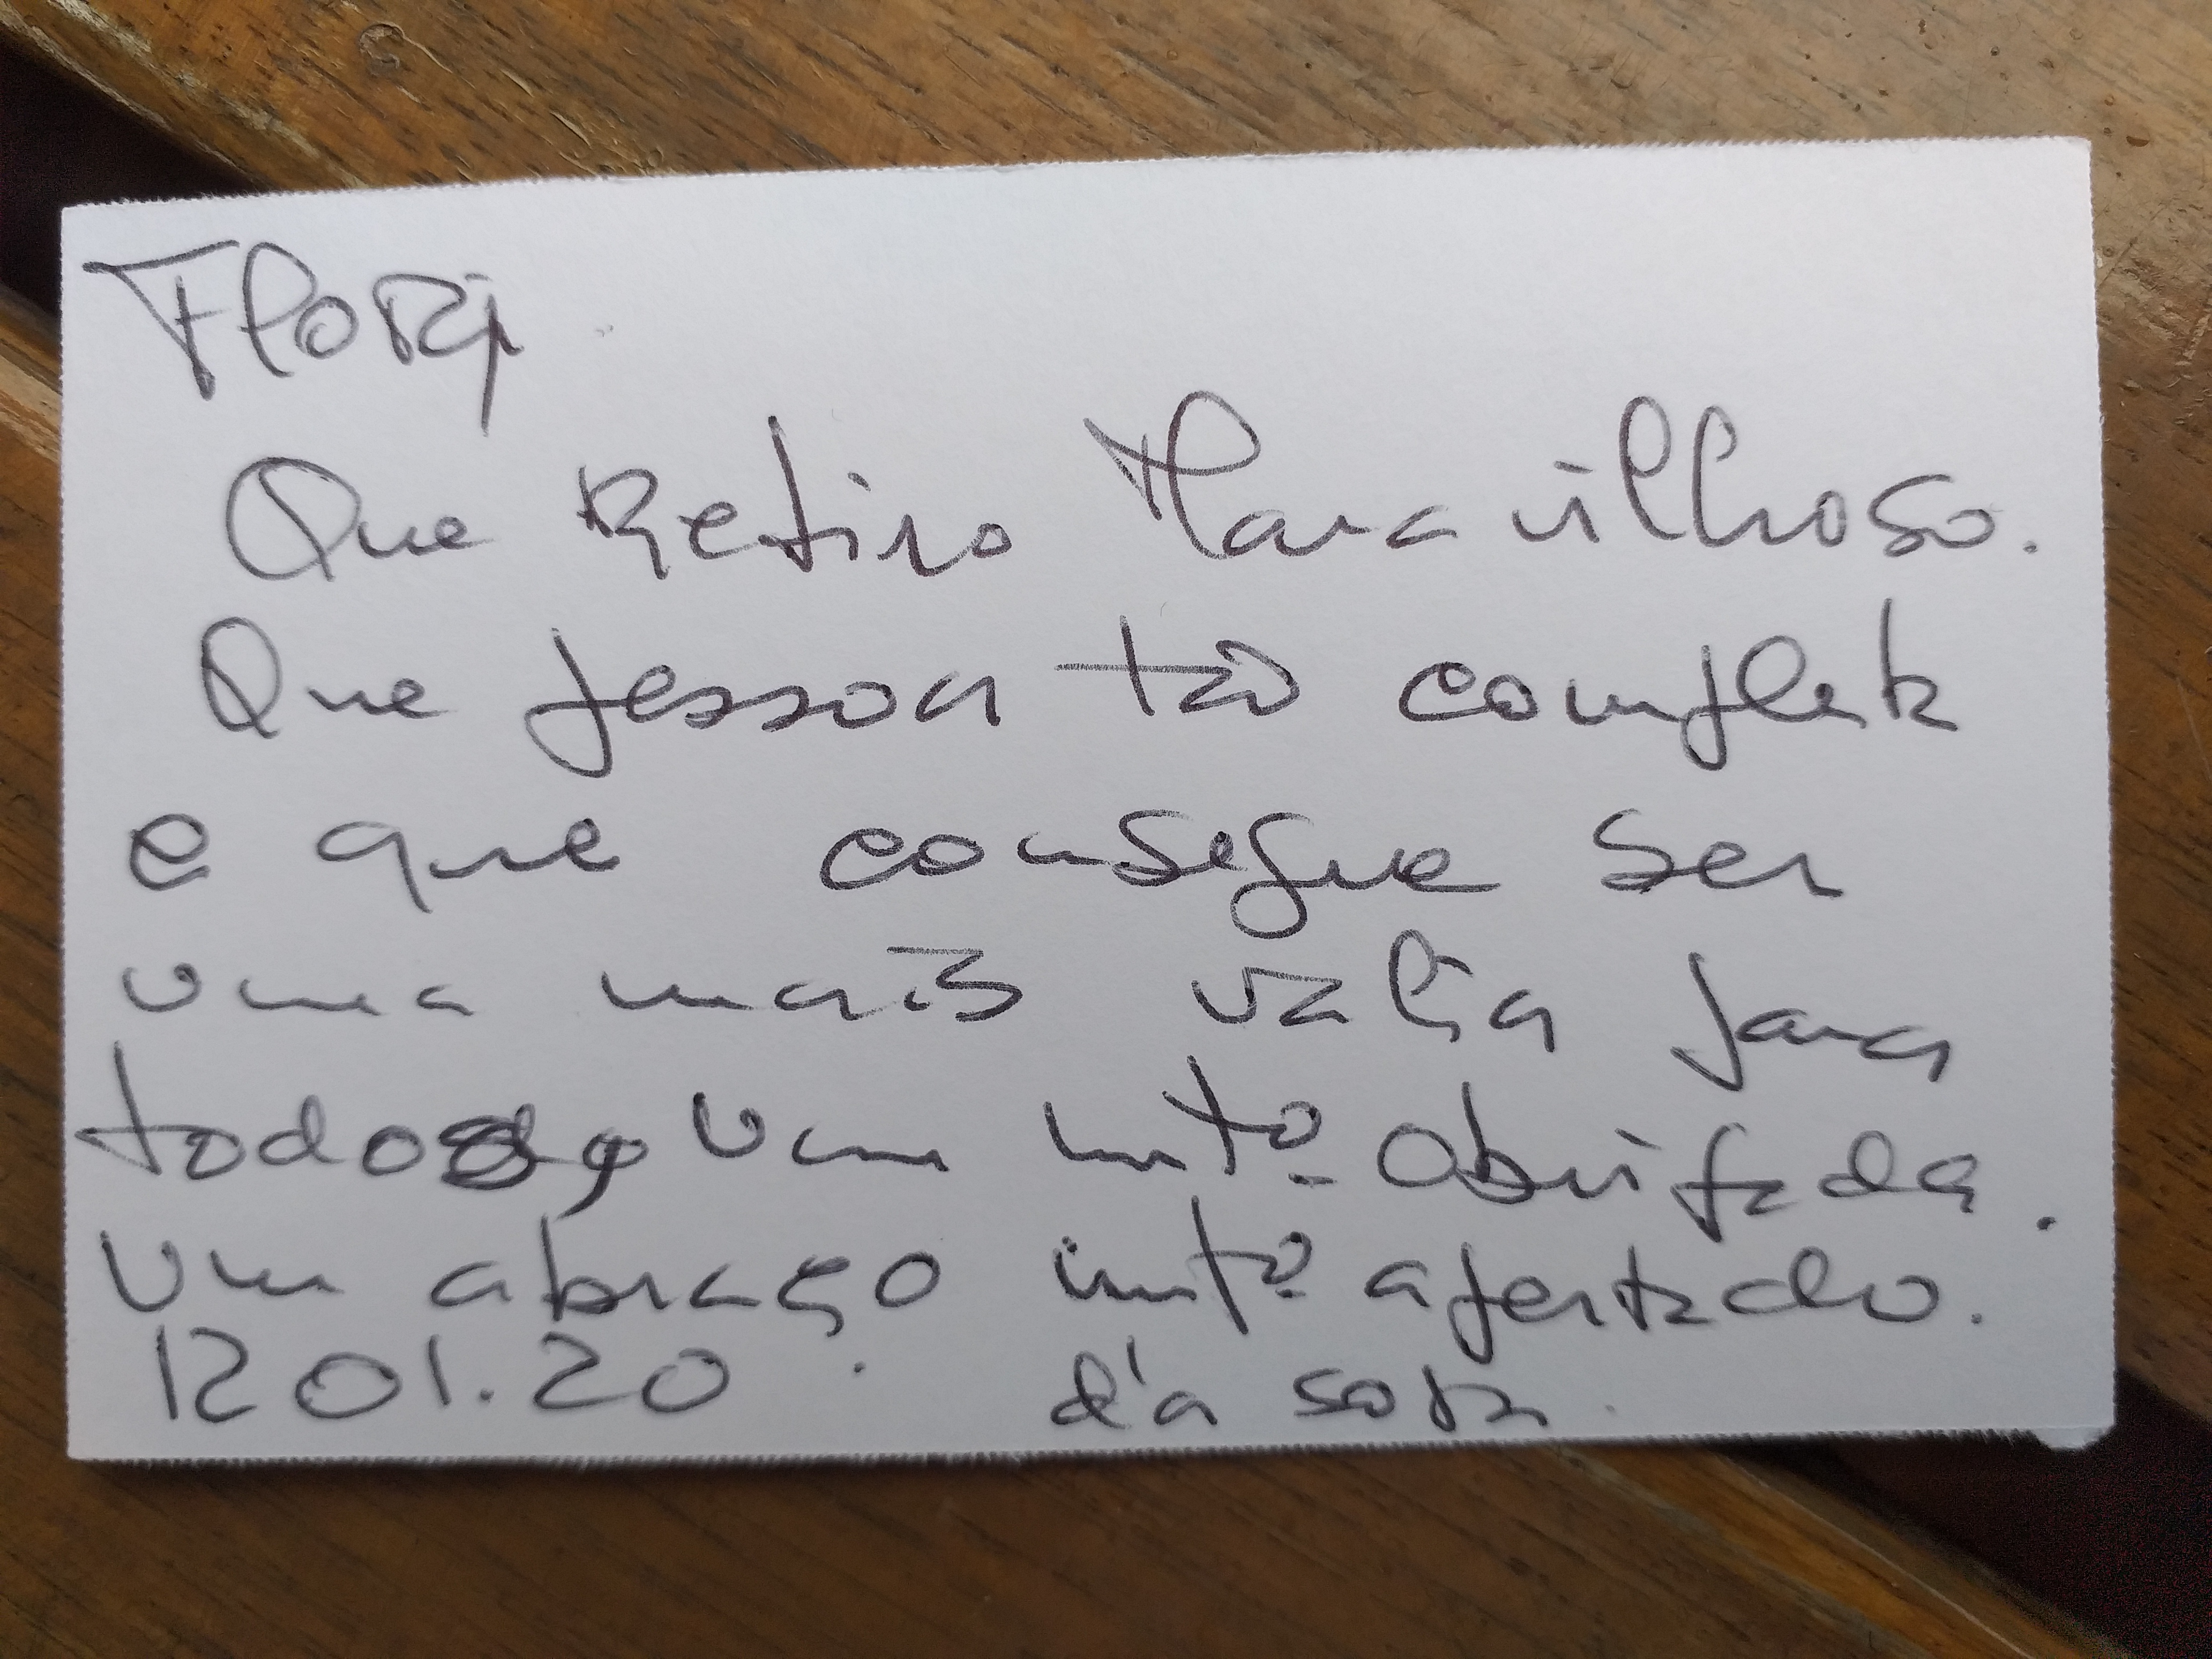 Flori
Que Retiro Maravilhoso.
Que pessoa tão completa
e que consegue ser
uma mais valia para
todos, um mtº obrigada.
Um abraço mtº apertado.
12 01.20 d'a